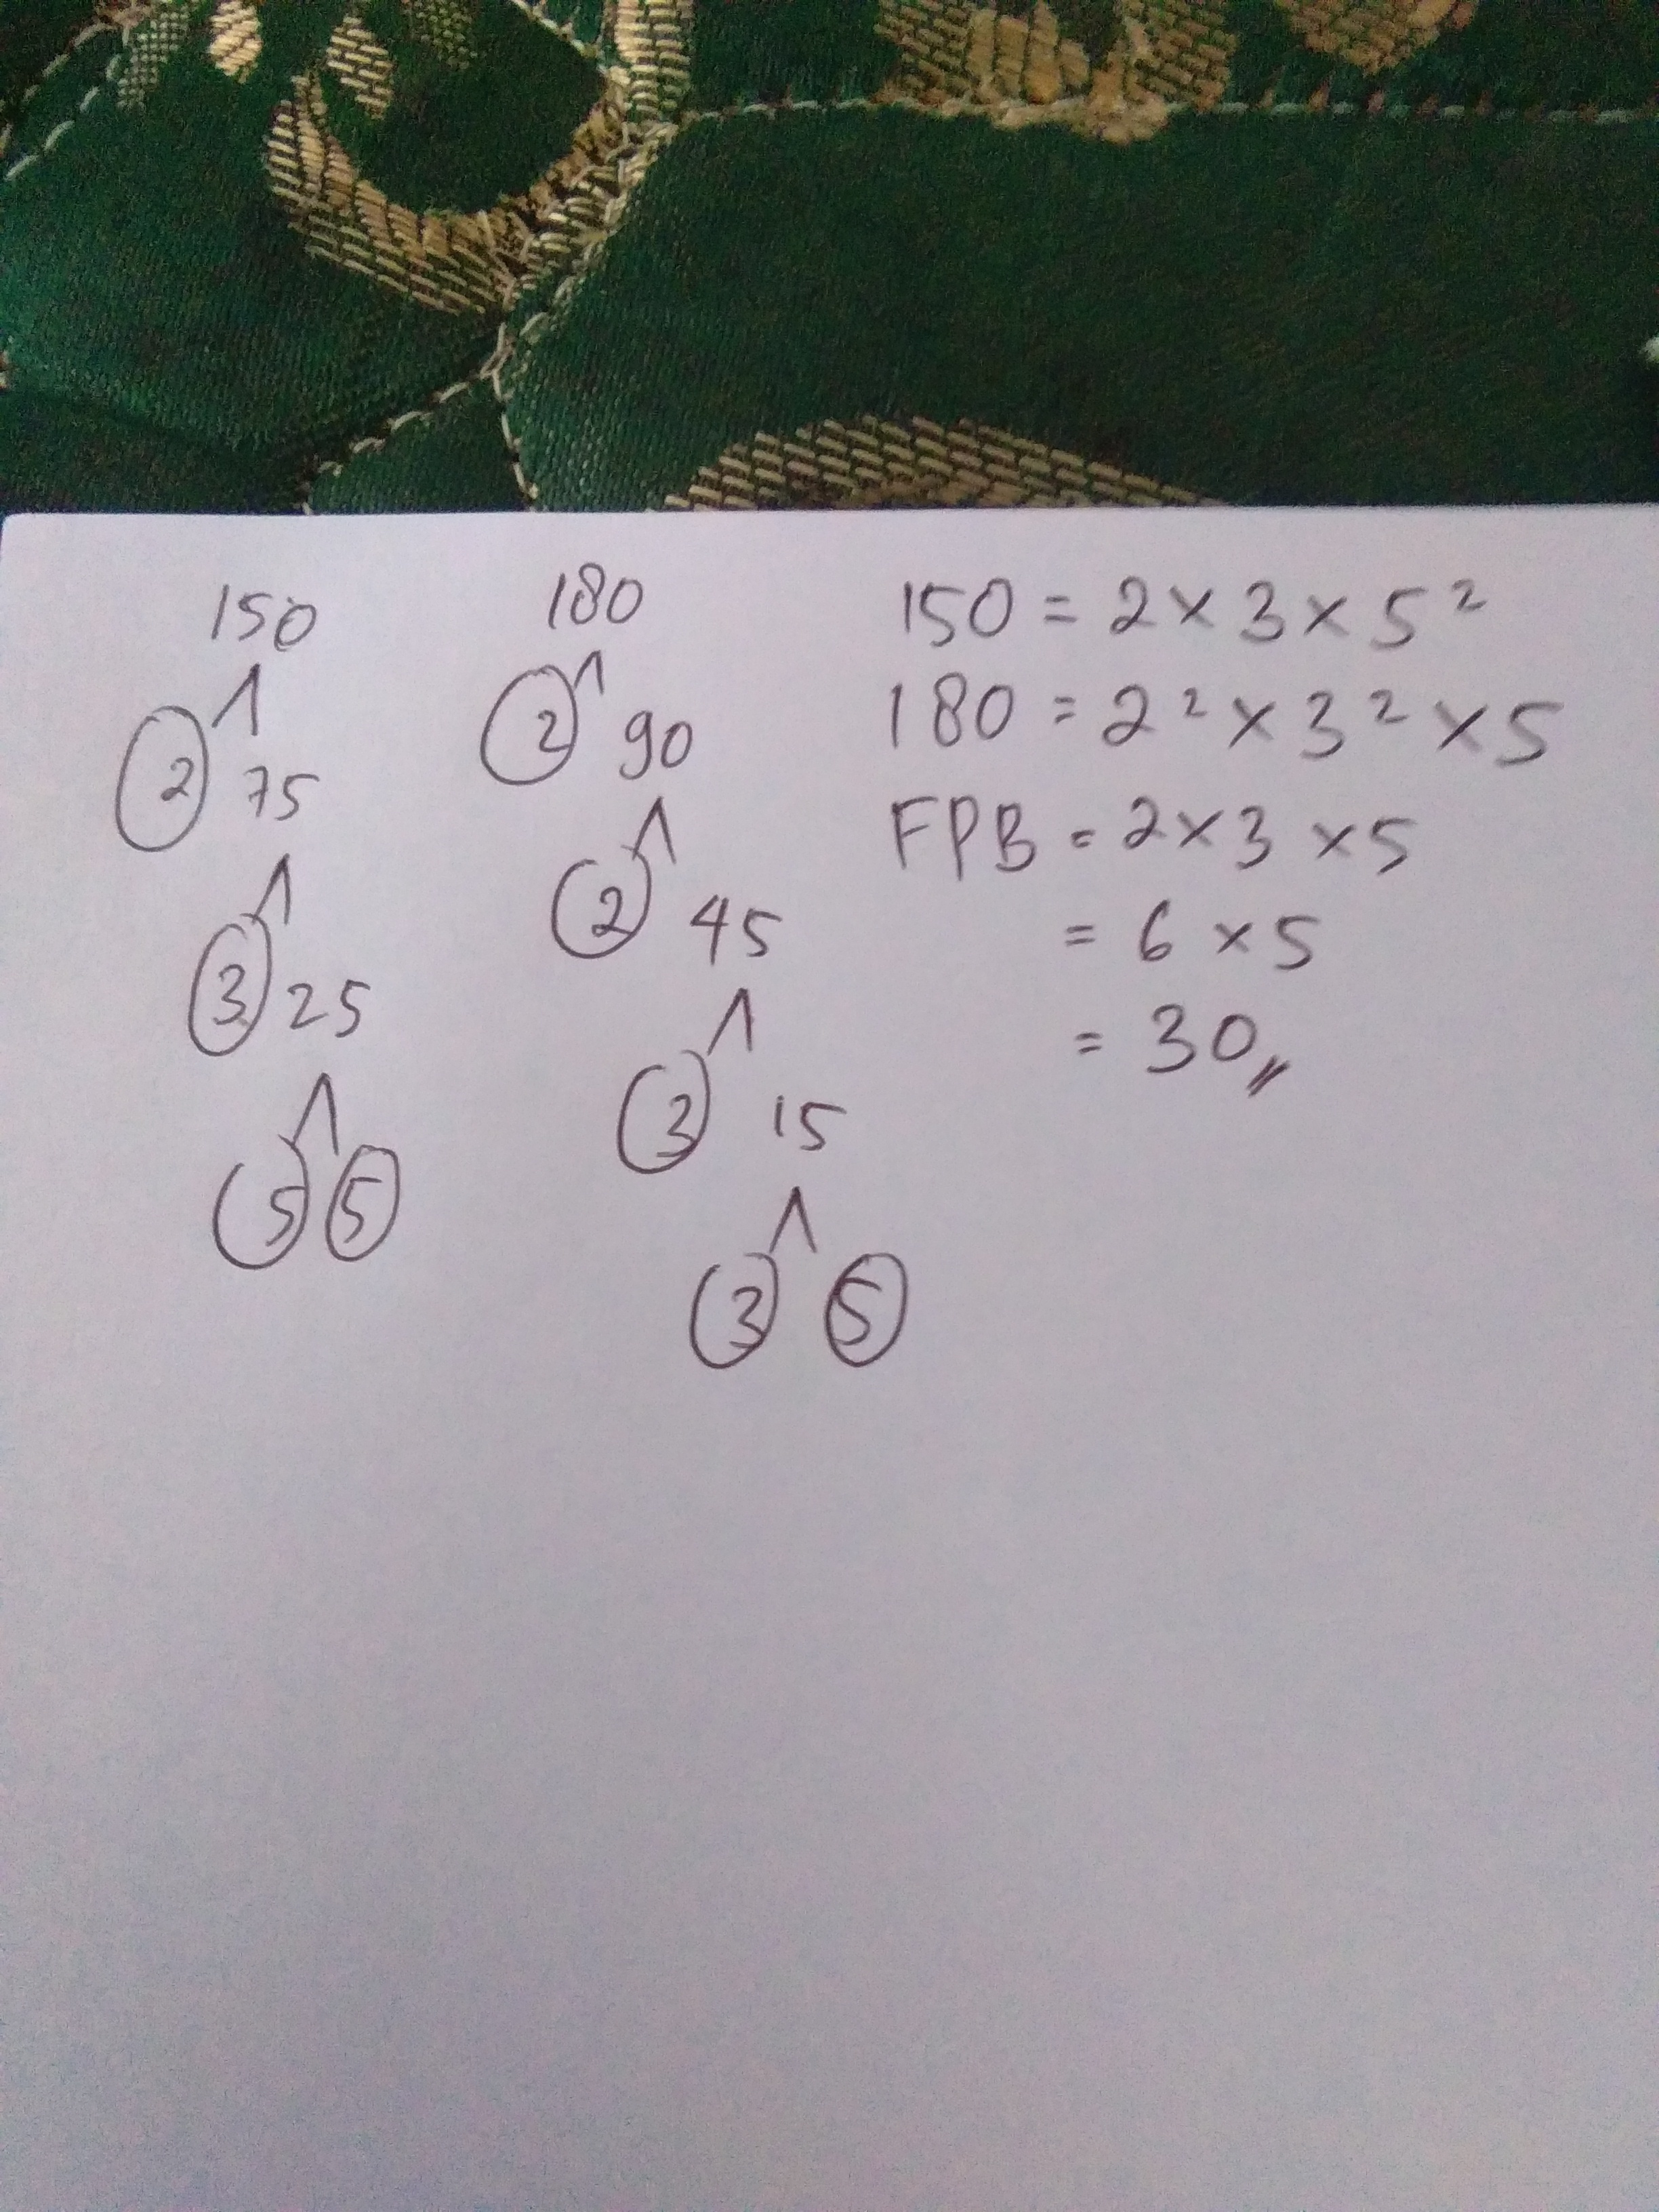 150
2 75
3 25
5 5
180
2 90
2 45
3 15
3 5
150 = 2 × 3 × 5²
180 = 2² × 3² × 5
FPB = 2 × 3 × 5
= 6 × 5
= 30,,